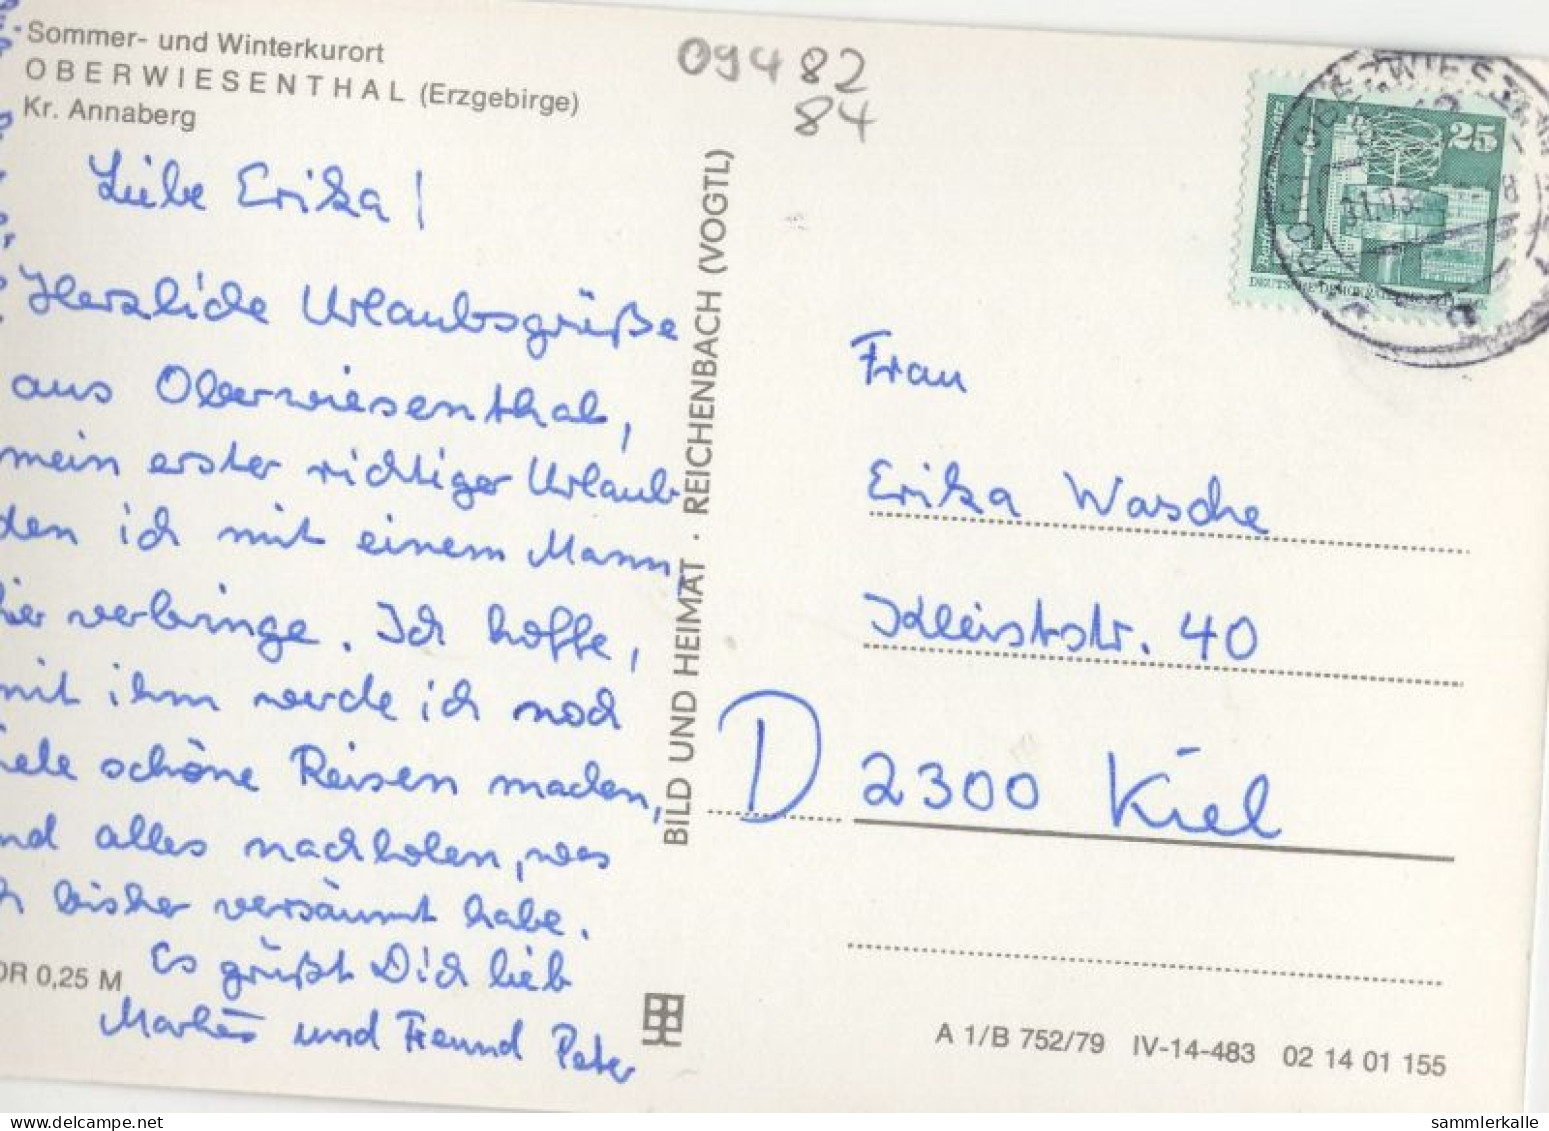 Sommer- und Winterkurort
OBERWIESENTHAL (Erzgebirge)
Kr. Annaberg
Liebe Erika!
Herzliche Urlaubsgrüße
aus Oberwiesenthal,
mein erster richtiger Urlaub
den ich mit einem Mann,
hier verbringe. Ich hoffe,
mit ihm werde ich noch
iele schöne Reisen machen,
nd alles nachholen, was
ch bisher versäumt habe.
Es grüßt Dich lieb
und Freund Peter
DR 0,25 M
BILD UND HEIMAT · REICHENBACH (VOGTL)
09482
84
25
DEUTSCHE DEMOKRATISCHE
31.03.
Frau
Erika Wasche
Kleiststr. 40
D 2300 Kiel
A 1/B 752/79 IV-14-483 02 14 01 155
sammlerkalle